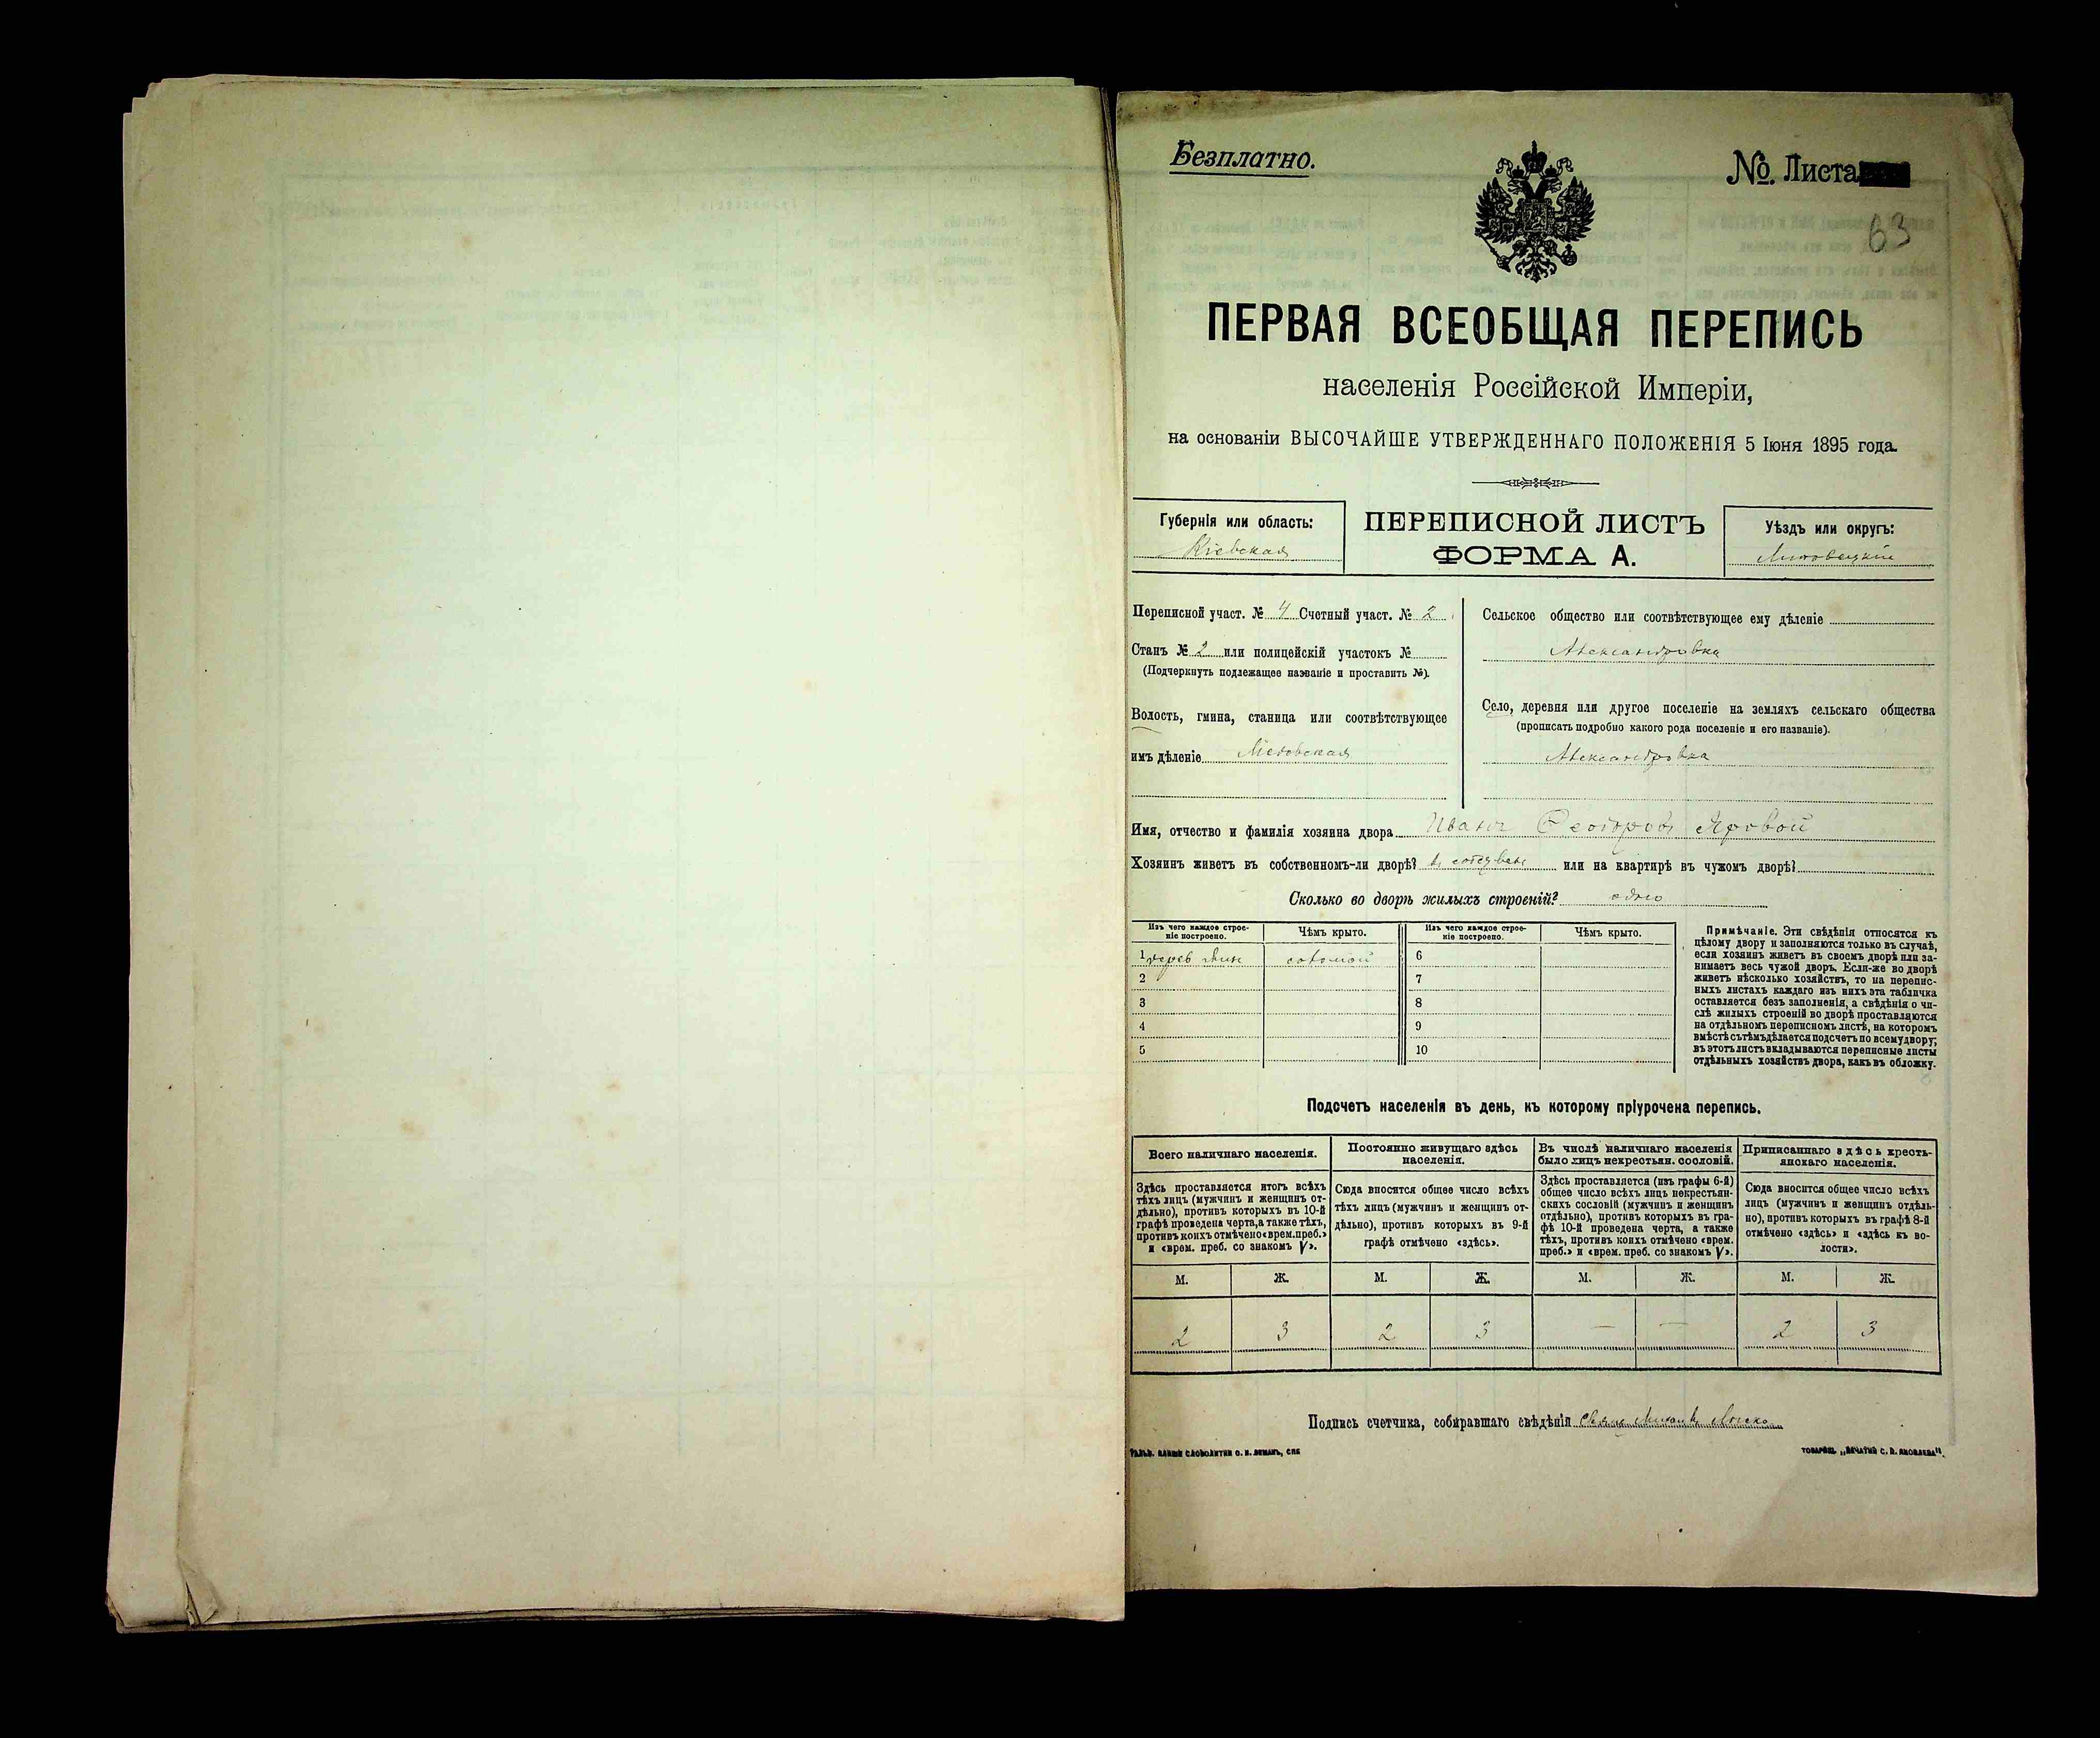 Безплатно.
№ Листа
63
ПЕРВАЯ ВСЕОБЩАЯ ПЕРЕПИСЬ
населенія Россійской Имперіи,
на основаніи ВЫСОЧАЙШЕ УТВЕРЖДЕННАГО ПОЛОЖЕНІЯ 5 Іюня 1895 года.
Губернія или область:
Кіевская
ПЕРЕПИСНОЙ ЛИСТЪ
ФОРМА А.
Уѣздъ или округъ:
Липовецкій
Переписной участ. № 4 Счетный участ. № 2
Станъ № 2 или полицейскій участокъ №
(Подчеркнуть подлежащее названіе и проставить №).
Волость, гмина, станица или соотвѣтствующее
имъ дѣленіе
Сельское общество или соотвѣтствующее ему дѣленіе
Александровка
Село, деревня или другое поселеніе на земляхъ сельскаго общества
(прописать подробно какого рода поселеніе и его названіе).
Александровка
Имя, отчество и фамилія хозяина двора Иванъ Феодоровъ Яровой
Хозяинъ живетъ въ собственномъ-ли дворѣ? въ собствен или на квартирѣ въ чужомъ дворѣ?
Сколько во дворѣ жилыхъ строеній? одно
Изъ чего каждое строе-
ніе построено.
Чѣмъ крыто.
Изъ чего каждое строе-
ніе построено.
Чѣмъ крыто.
1 дерев соломой 6
2 7
3 8
4 9
5 10
Примѣчаніе. Эти свѣдѣнія относятся къ
цѣлому двору и заполняются только въ случаѣ,
если хозяинъ живетъ въ своемъ дворѣ или за-
нимаетъ весь чужой дворъ. Если-же во дворѣ
живетъ нѣсколько хозяйствъ, то на перепис-
ныхъ листахъ каждаго изъ нихъ эта табличка
оставляется безъ заполненія, а свѣдѣнія о чи-
слѣ жилыхъ строеній во дворѣ проставляются
на отдѣльномъ переписномъ листѣ, на которомъ
вмѣстѣ съ тѣмъ дѣлается подсчетъ по всему двору;
въ этотъ листъ вкладываются переписные листы
отдѣльныхъ хозяйствъ двора, какъ въ обложку.
Подсчетъ населенія въ день, къ которому пріурочена перепись.
Всего наличнаго населенія.
Здѣсь проставляется итогъ всѣхъ
тѣхъ лицъ (мужчинъ и женщинъ от-
дѣльно), противъ которыхъ въ 10-й
графѣ проведена черта, а также тѣхъ,
противъ коихъ отмѣчено «врем. преб.»
и «врем. преб. со знакомъ V».
Постоянно живущаго здѣсь
населенія.
Сюда вносится общее число всѣхъ
тѣхъ лицъ (мужчинъ и женщинъ от-
дѣльно), противъ которыхъ въ 9-й
графѣ отмѣчено «здѣсь».
Въ числѣ наличнаго населенія
было лицъ некрестьян. сословій.
Здѣсь проставляется (изъ графы 6-й)
общее число всѣхъ лицъ некрестьян-
скихъ сословій (мужчинъ и женщинъ
отдѣльно), противъ которыхъ въ гра-
фѣ 10-й проведена черта, а также
тѣхъ, противъ коихъ отмѣчено «врем.
преб.» и «врем. преб. со знакомъ V».
Приписаннаго здѣсь кресть-
янскаго населенія.
Сюда вносится общее число всѣхъ
лицъ (мужчинъ и женщинъ отдѣль-
но), противъ которыхъ въ графѣ 8-й
отмѣчено «здѣсь» и «здѣсь къ во-
лости».
М. Ж. М. Ж. М. Ж. М. Ж.
2 3 2 3 — — 2 3
Подпись счетчика, собиравшаго свѣдѣнія
СЛОВОЛИТНИ О. И. ЛЕМАНЪ, СПБ
ТОВАРИЩ. „ПЕЧАТНИ С. П. ЯКОВЛЕВА".